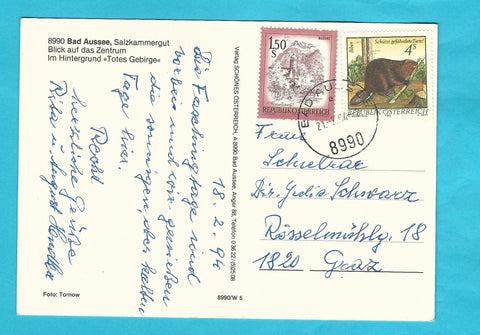 8990 Bad Aussee, Salzkammergut
Blick auf das Zentrum
Im Hintergrund »Totes Gebirge«
18. 2. 94
Die Faschingtage sind
vorbei und wir genießen
die sonnigen, aber kalten
Tage hier.
Recht
herzliche Grüße
Rita u. August
Foto: Tornow
Verlag SCHÖNES ÖSTERREICH, A-8990 Bad Aussee, Anger 88, Telefon 0 36 22 /
8990/W 5
1.50
S
REPUBLIK ÖSTERREICH
Schützt gefährdete Tiere!
4 S
REPUBLIK ÖSTERREICH
BAD AU
8990
Frau
Schulrat
Dir. Julia Schwarz
Rösselmühlg. 18/10
1820 Graz